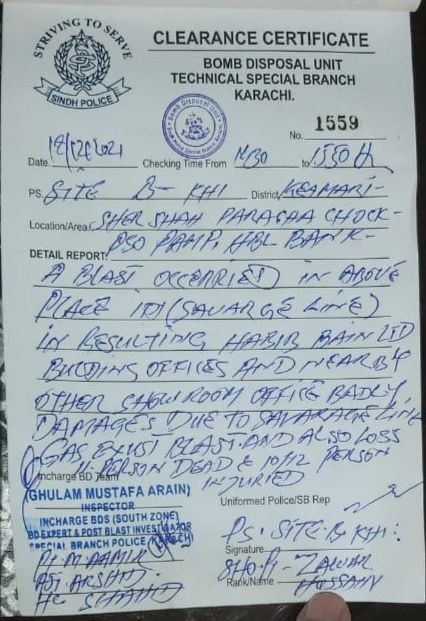 STRIVING TO SERVE
SINDH POLICE
CLEARANCE CERTIFICATE
BOMB DISPOSAL UNIT
TECHNICAL SPECIAL BRANCH
KARACHI.
Bomb Disposal Unit
No. 1559
Date 18/12/2021 Checking Time From to 1530 H
PS. SITE B-KHI District KEAMARI-
Location/Area. SHER SHAH PARACHA CHOCK-
DETAIL REPORT: PSO PAMP, HBL BANK-
A BLAST OCCERRIED IN ABOVE
PLACE (SAVARGE LINE)
IN RESULTING HABIB BAIN LTD
BUILDING OFFICES AND NEARBY
OTHER SHOWROOM OFFICE BADLY
DAMAGES DUE TO SAVARAGE LINE
GAS BLAST. AND ALSO LOSS
11-PERSON DEAD & 10/12 PERSON
INJURIED
Incharge BD Team
(GHULAM MUSTAFA ARAIN)
INSPECTOR
INCHARGE BDS (SOUTH ZONE)
BD EXPERT & POST BLAST INVESTIGATOR
SPECIAL BRANCH POLICE, KARACHI
Uniformed Police/SB Rep
PS. SITE-B KHI:
Signature
SHO. PI- ZAWAR
Rank/Name HUSSAIN
PI. M AAMIR
ASI. ARSHD.
HC